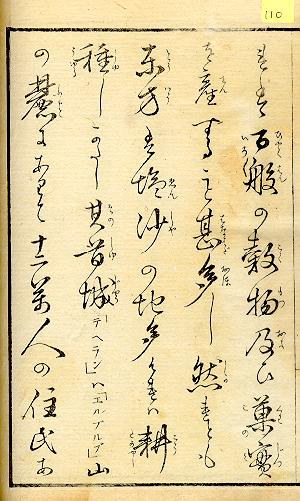 110
百般の穀物及ひ菓實
を産する甚多し然れとも
東方は塩沙の地多けれハ耕
種しかたし其首城「テヘラン」ハ「エルブルブ」山
の麓にありて十二万人の住民あ